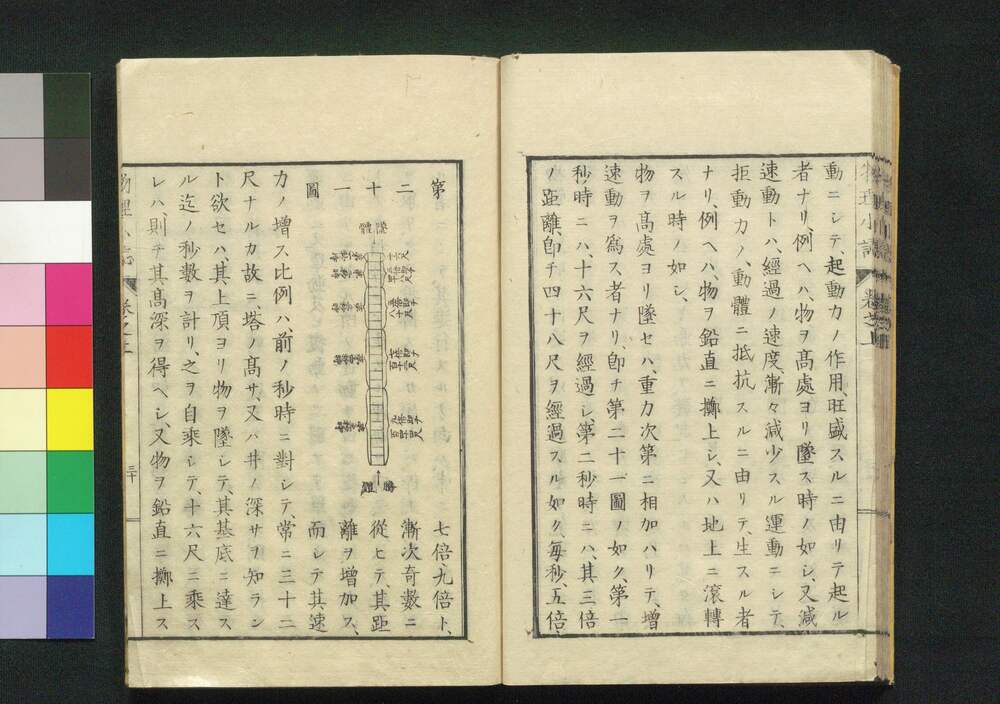 動ニシテ、起動力ノ作用、旺盛スルニ由リテ起ル
者ナリ、例ヘハ、物ヲ髙處ヨリ墜ス時ノ如シ、又減
速動トハ、經過ノ速度漸々減少スル運動ニシテ、
拒動力ノ、動體ニ抵抗スルニ由リテ、生スル者
ナリ、例ヘハ、物ヲ鉛直ニ擲上シ、又ハ地上ニ滚轉
スル時ノ如シ、
物ヲ髙處ヨリ墜セハ、重力次第ニ相加ハリテ、增
速動ヲ爲ス者ナリ、卽チ第二十一圖ノ如ク、第一
秒時ニハ、十六尺ヲ經過シ、第二秒時ニハ、其三倍
ノ距離、卽チ四十八尺ヲ經過スル如ク、每秒、五倍、
七倍、九倍ト、
漸次奇數ニ
從ヒテ、其距
離ヲ增加ス、
而シテ其速
第二十一圖
墜體
力ノ增ス比例ハ、前ノ秒時ニ對シテ、常ニ三十二
尺ナルカ故ニ、塔ノ髙サ、又ハ井ノ深サヲ知ラン
ト欲セハ、其上頂ヨリ物ヲ墜シテ、其基底ニ達ス
ル迄ノ秒數ヲ計リ、之ヲ自乘シテ、十六尺ニ乘ス
レハ、則チ其髙深ヲ得ヘシ、又物ヲ鉛直ニ擲上ス
三十